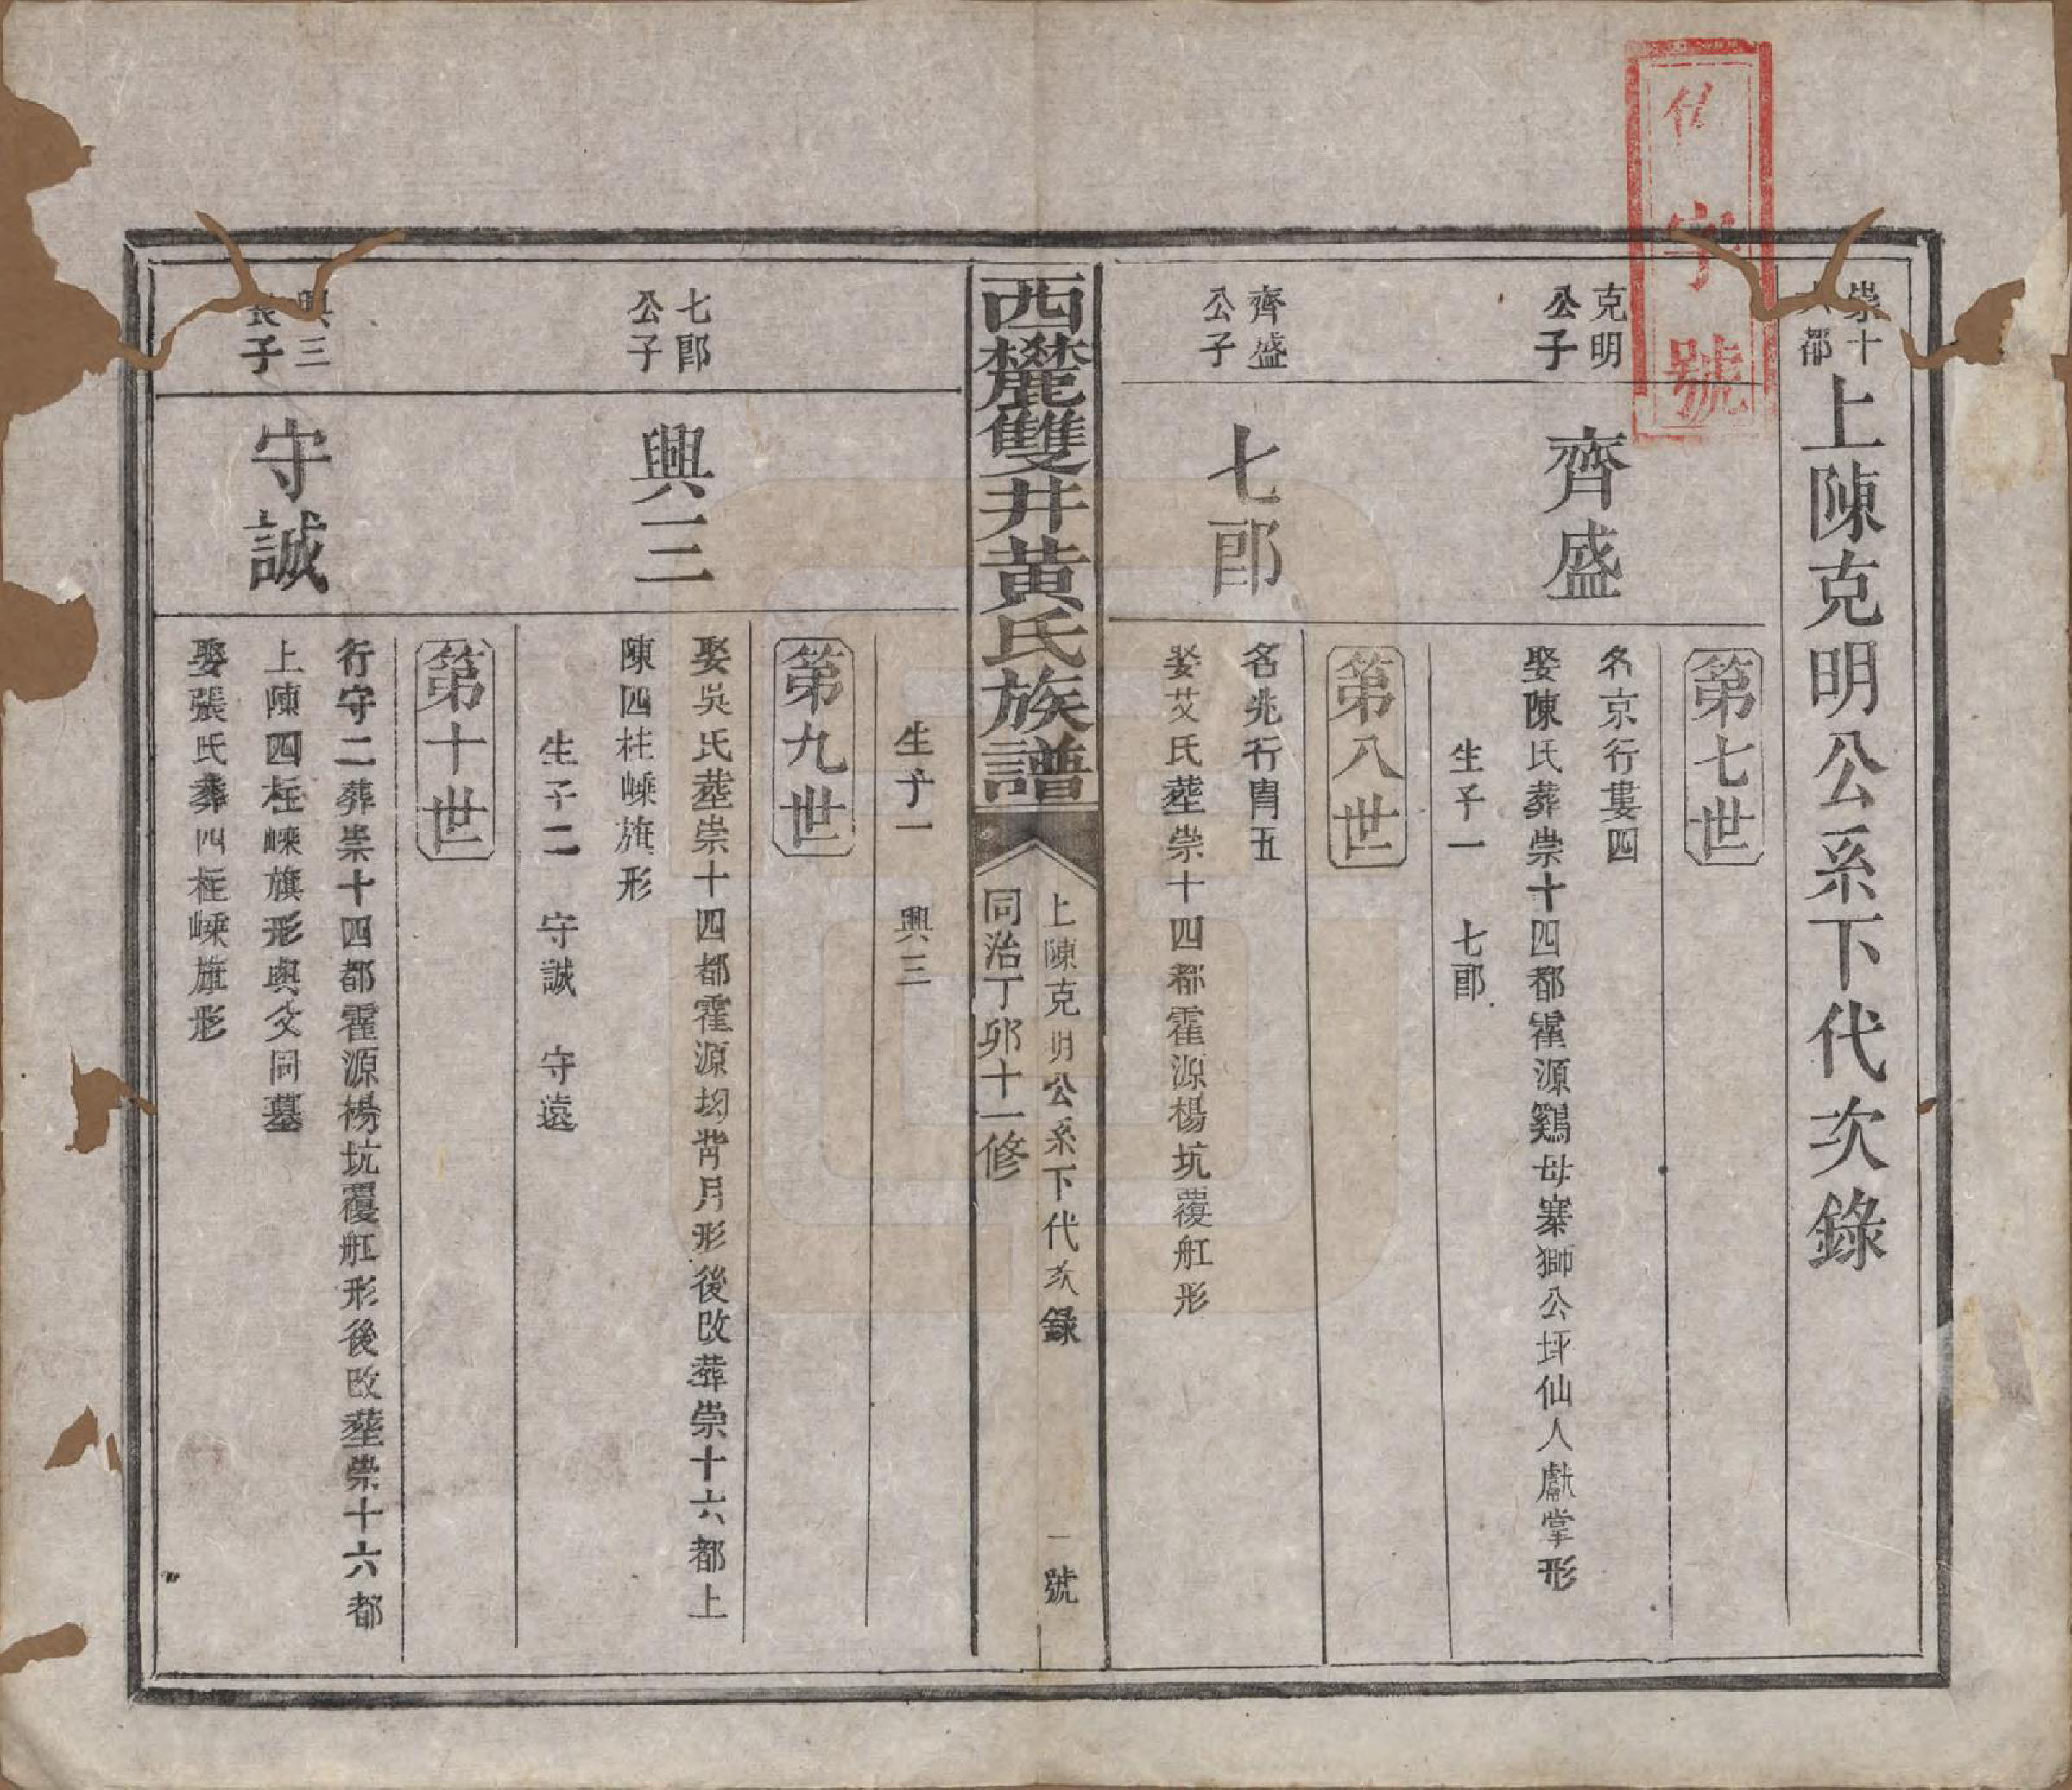 字號
崇十
六都
上陳克明公系下代次錄
第七世
克明
公子
齊盛
名京行婁四
娶陳氏葬崇十四都霍源鷄母寨獅公坪仙人獻掌形
生子一 七郎
第八世
齊盛
公子
七郎
名兆行胄五
娶艾氏葬崇十四都霍源楊坑覆舡形
西麓雙井黃氏族譜
上陳克明公系下代次錄
一號
同治丁卯十一修
生子一 興三
第九世
七郎
公子
興三
娶吳氏葬崇十四都霍源坳背月形後改葬崇十六都上
陳四柱嵊旗形
生子二 守誠 守遠
第十世
興三
長子
守誠
行守二葬崇十四都霍源楊坑覆舡形後改葬崇十六都
上陳四柱嵊旗形與父同墓
娶張氏葬四柱嵊旗形